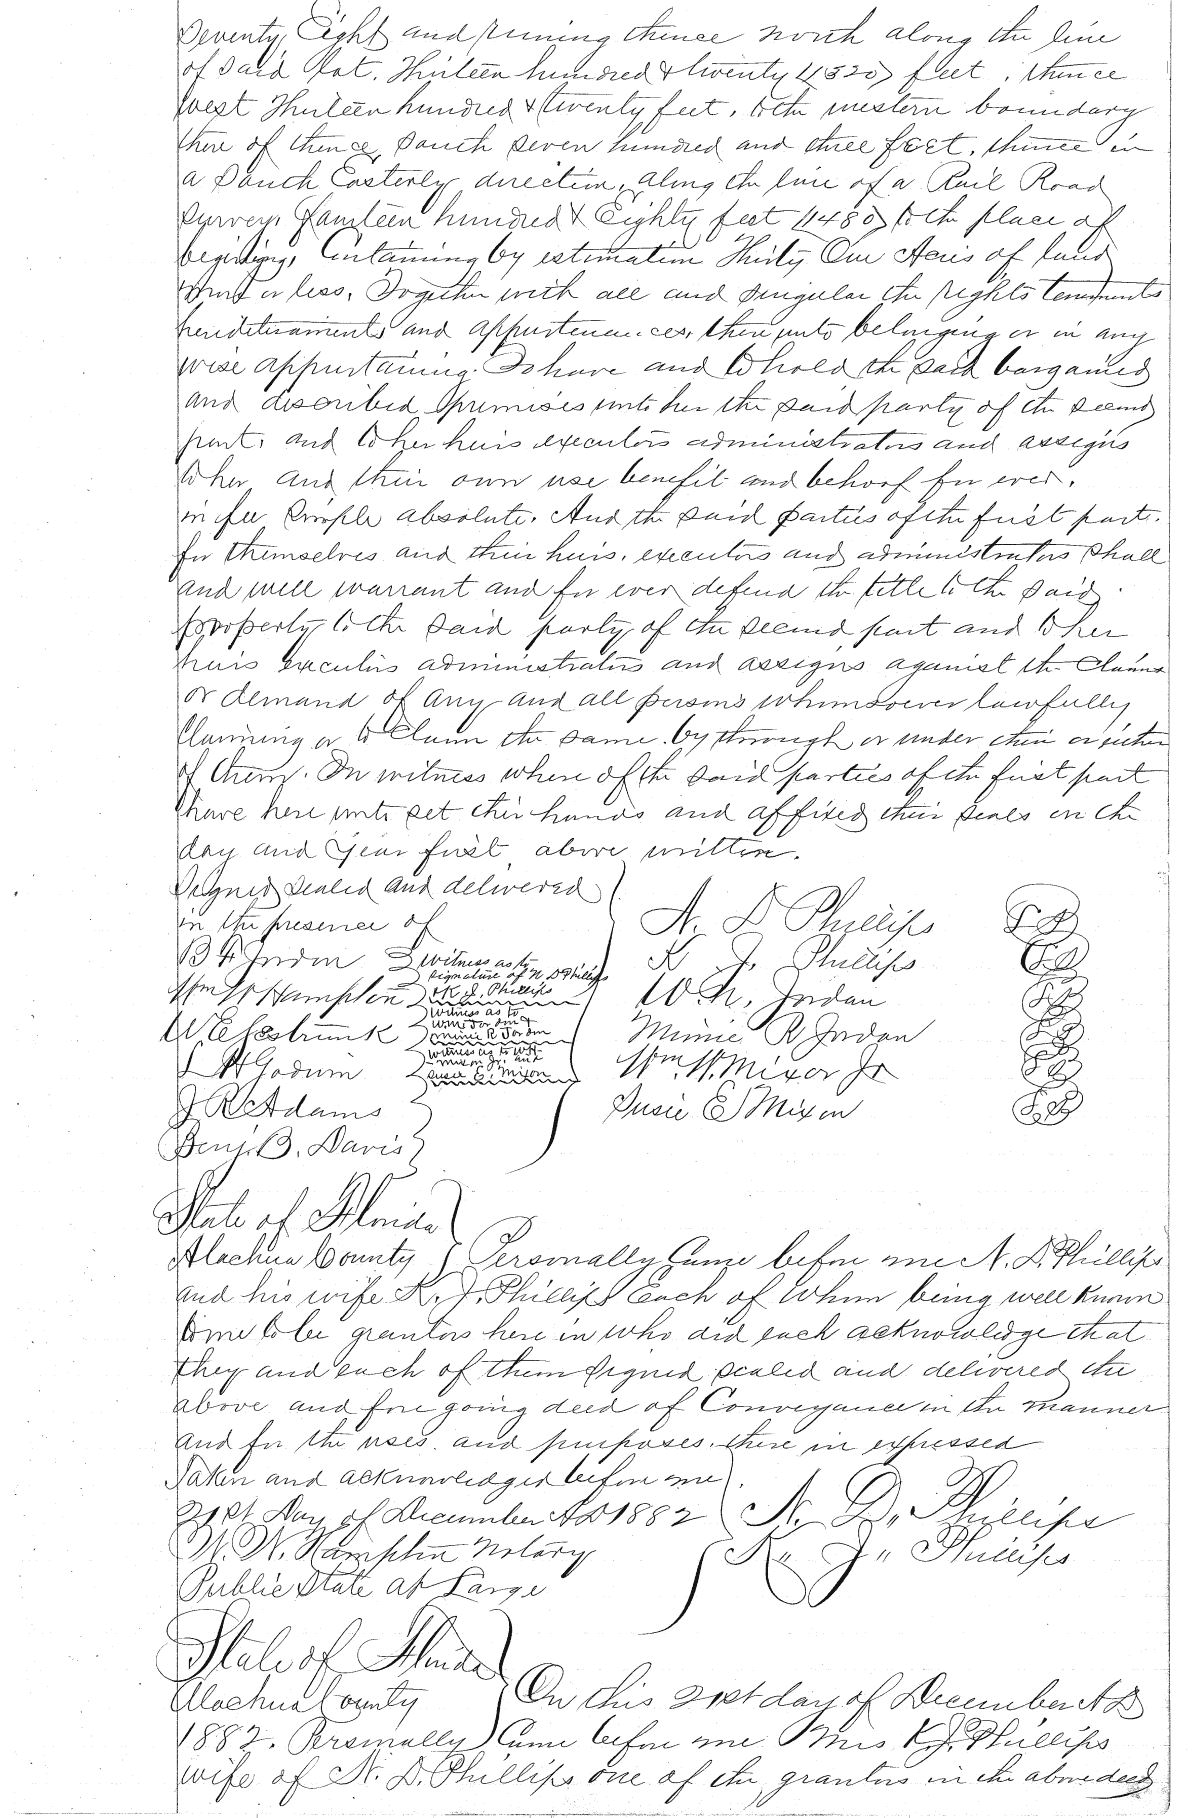 Seventy Eight and runing thence north along the line
of Said Lot. Thirteen hundred & twenty (1320) feet, thence
west Thirteen hundred & twenty feet, to the western boundary
there of thence, South seven hundred and three feet, thence in
a South Easterly direction, along the line of a Rail Road
Survey, Fourteen hundred & Eighty feet (1480) to the place of
begining, Containing by estimation Thirty One Acres of land
more or less, Together with all and singular the rights tenements
hereditaments and appurtenances, there unto belonging or in any
wise appurtaining. To have and to hold the said bargained
and discribed premises unto her the said party of the second
part, and to her heirs executors administrators and assigns
to her and their own use benefit and behoof for ever,
in fee simple absolute. And the said parties of the first part.
for themselves and their heirs, executors and administrators shall
and will warrant and for ever defend the title to the said
property to the said party of the second part and to her
heirs executors administrators and assigns against the claims
or demand of any and all persons whomsoever lawfully
claiming or to claim the same, by through or under their or either
of them. In witness where of the said parties of the first part
have here unto set their hands and affixed their seals on the
day and year first above written.
Signed sealed and delivered
in the presence of N. D Phillips
B F Jordon witness as to K J. Phillips
signature of N D Phillips
Wm W Hampton & K J. Phillips W. N. Jordan
witness as to
Wm Jordon &
minie R Jordon Minie R Jordan
witness as to Wm
Mixon Jr. and
L H Godwin Susie E. Mixon Wm. W. Mixon Jr
J R Adams Susie E Mixon
Benj. B. Davis
State of Florida
Alachua County } Personally Came before me N. D. Phillips
and his wife K. J. Phillips Each of Whom being well known
to me to be grantors here in who did each acknowledge that
they and each of them signed sealed and delivered the
above and fore going deed of Conveyance in the manner
and for the uses and purposes, there in expressed
Taken and acknowledged before me
21st Day of December AD 1882 N. D. Phillips
W. W. Hampton Notary K. J. Phillips
Public State at Large
State of Florida
Alachua County On this 21st day of December AD
1882. Personally Came before me Mrs K. J. Phillips
wife of N. D. Phillips one of the grantors in the above deed